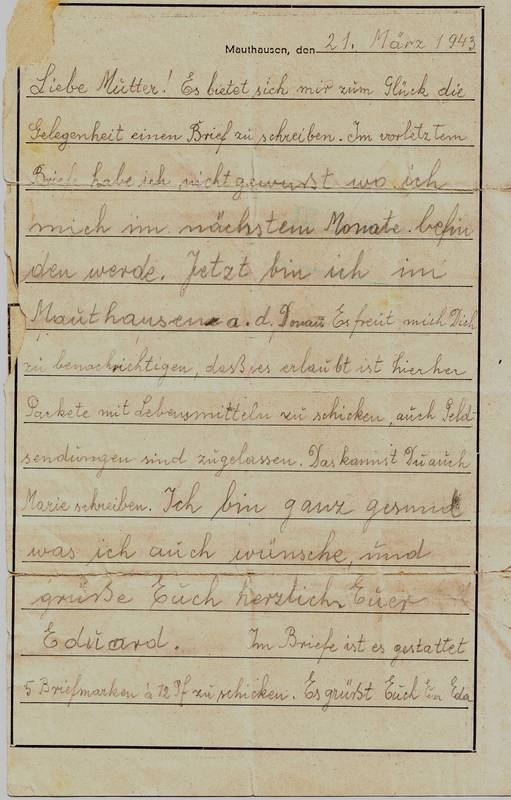 Mauthausen, den 21. März 1943
Liebe Mutter! Es bietet sich mir zum Glück die
Gelegenheit einen Brief zu schreiben. Im vorletztem
Briefe habe ich nicht gewusst wo ich
mich im nächstem Monate befin
den werde. Jetzt bin ich im
Mauthausen a. d. Donau Es freut mich Dich
zu benachrichtigen, dass es erlaubt ist hierher
Packete mit Lebensmitteln zu schicken, auch Geld-
sendungen sind zugelassen. Das kannst Du auch
Marie schreiben. Ich bin ganz gesund
was ich auch wünsche, und
grüße Euch herzlich Euer
Eduard. Im Briefe ist es gestattet
5 Briefmarken à 12 Pf zu schicken. Es grüßt Euch Eda